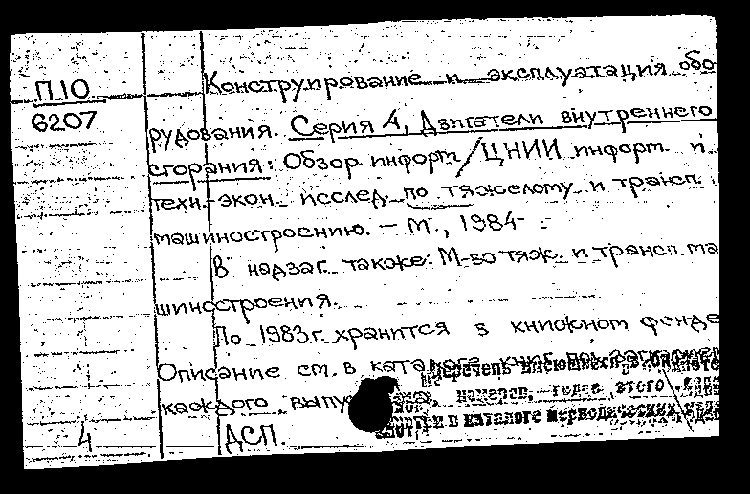 П10
6207
Конструирование и эксплуатация обо
рудования. Серия 4, Двигатели внутреннего
сгорания: Обзор. информ. / ЦНИИ информ. и
техн.-экон. исслед. по тяжелому и трансп.
машиностроению. - М., 1984-
В надзаг. также: М-во тяж. и трансп. ма
шиностроения.
По 1983 г. хранится в книжном фонде
Описание см. в каталоге книг под
каждого выпу
Перечень имеющихся в
номеров, годов этого
в каталоге периодических
4
ДСП.